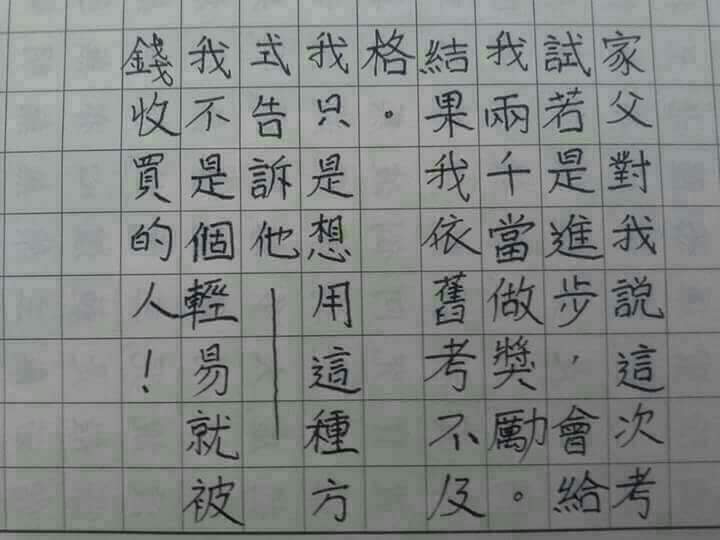 家父對我說這次考
試若是進步，會給
我兩千當做獎勵。
結果我依舊考不及
格。
我只是想用這種方
式告訴他——
我不是個輕易就被
錢收買的人！